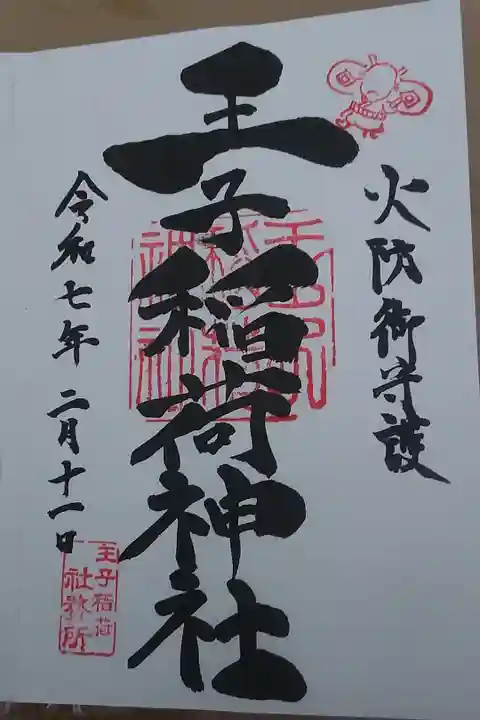 火防御守護
王子稲荷神社
令和七年二月十一日
王子稲荷
社務所